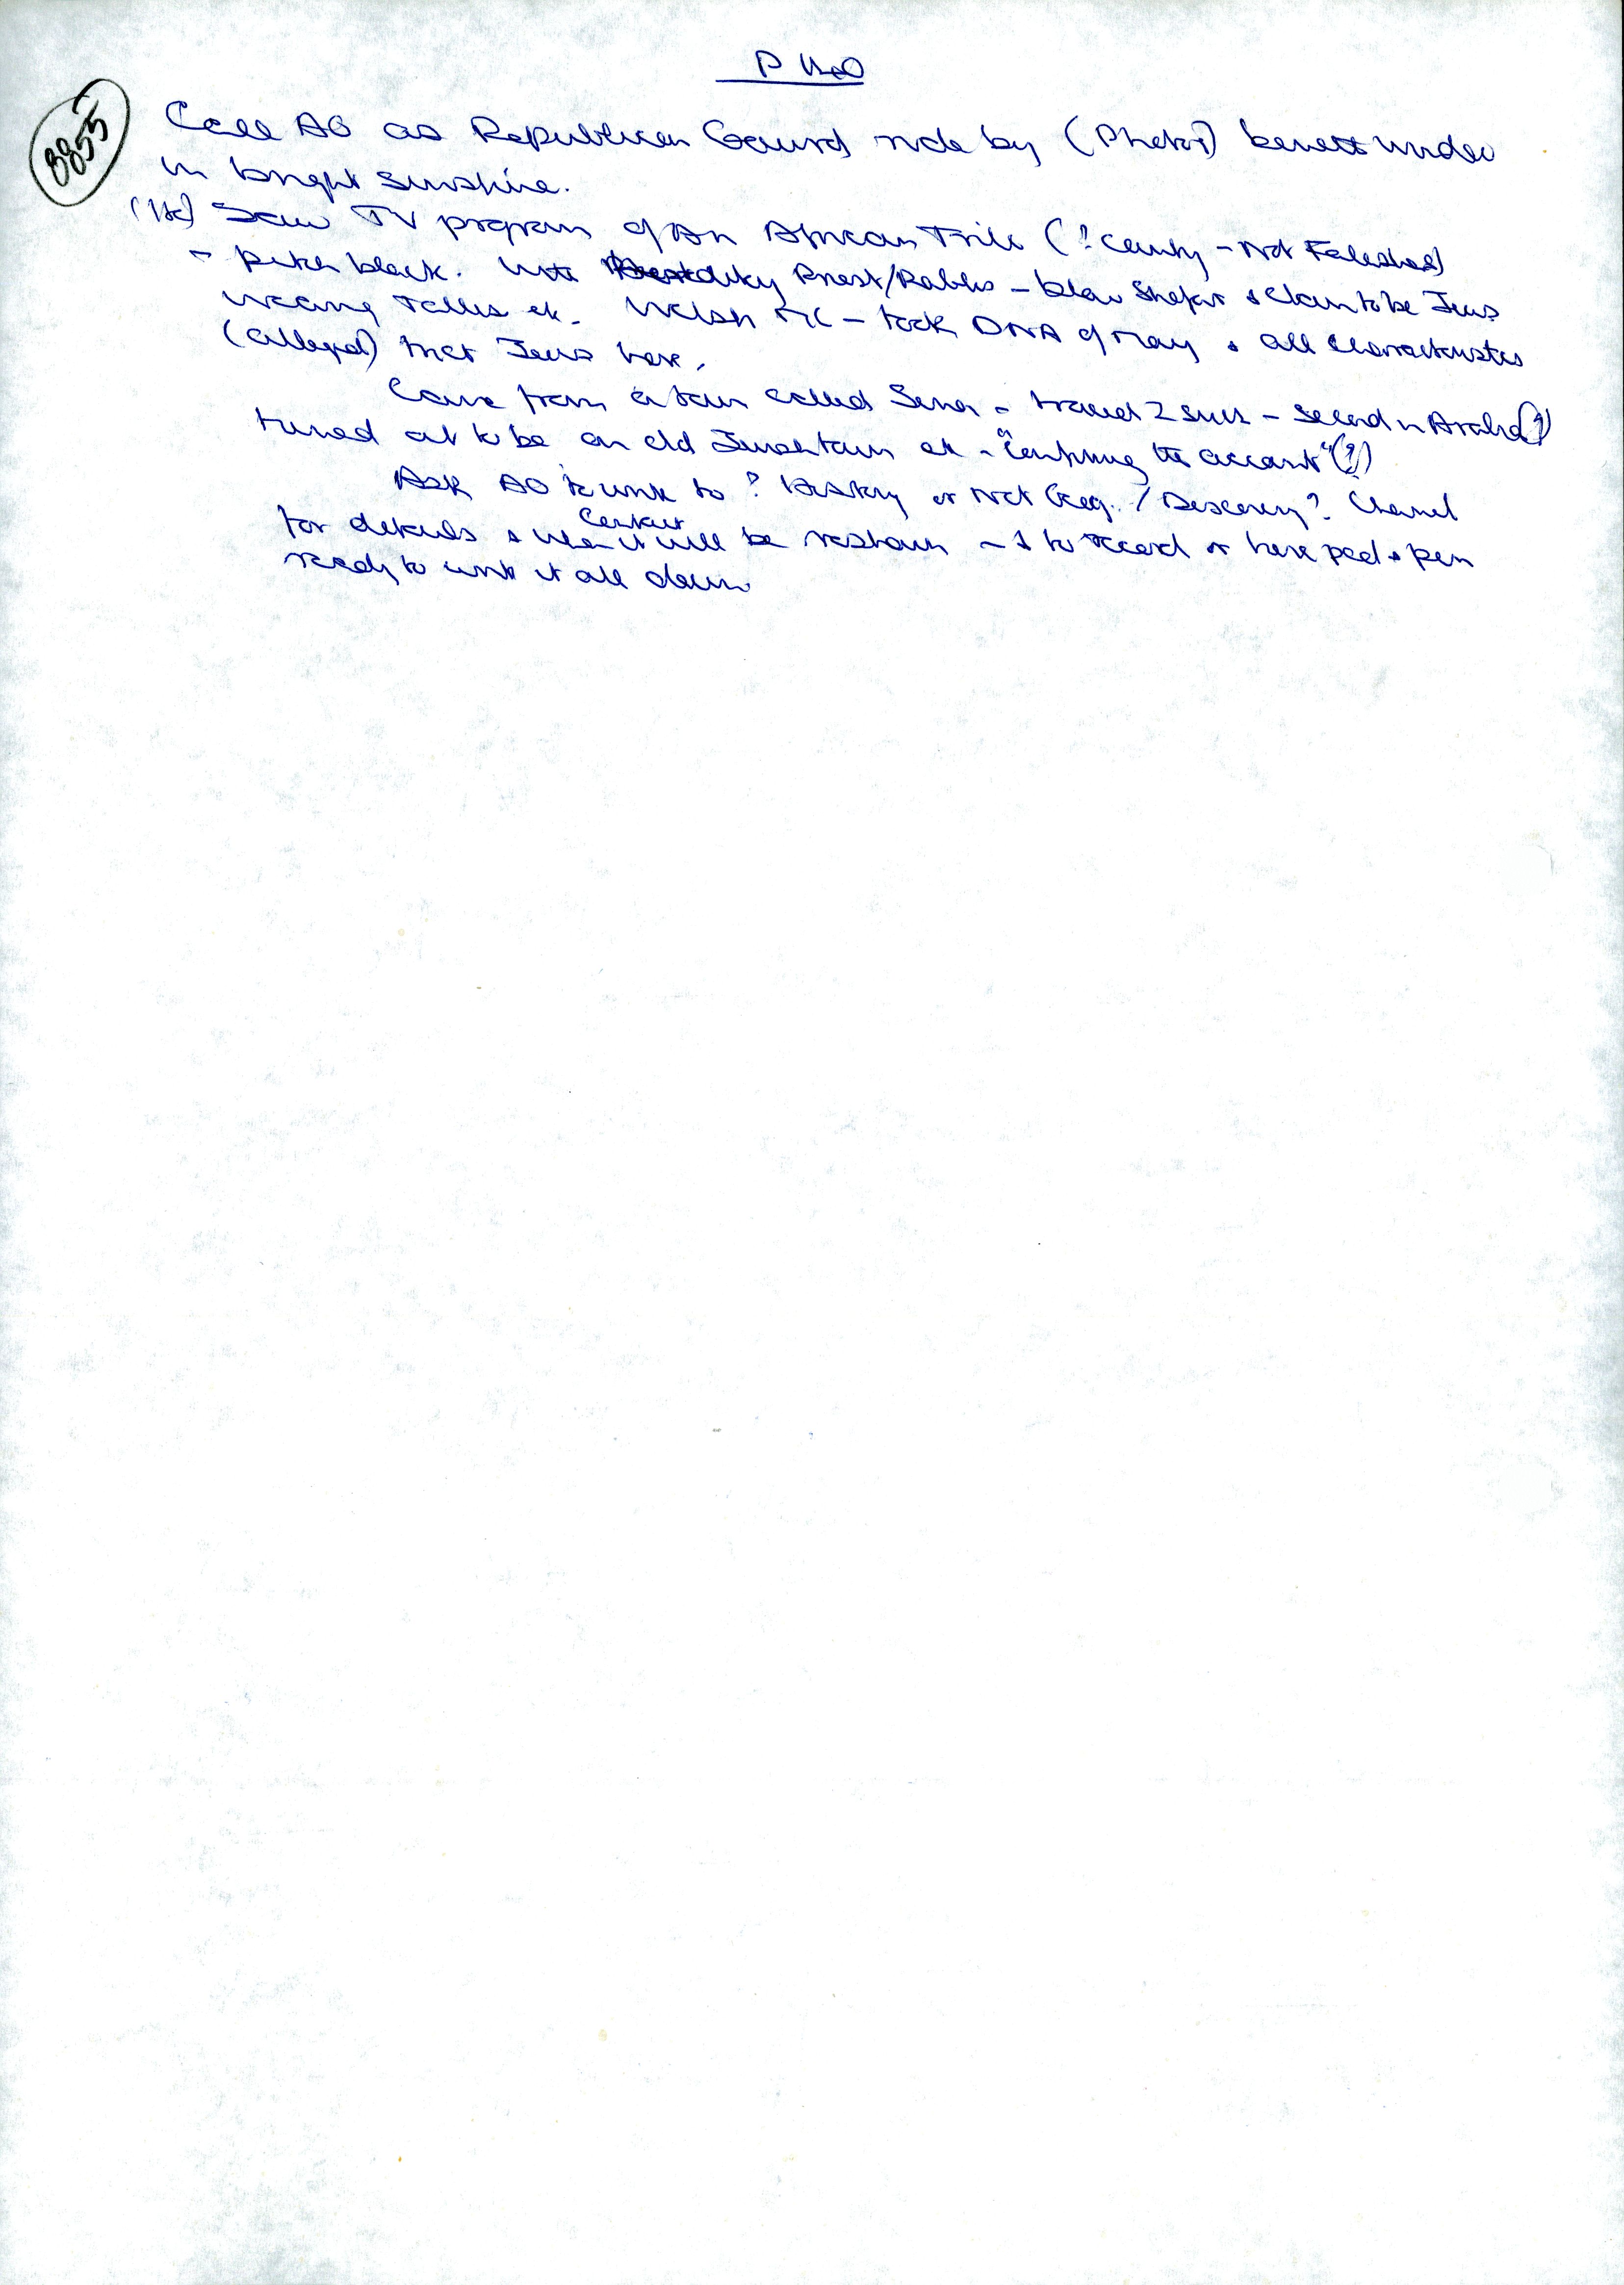 8855
Call AO as Republican Gaurd ride by (Photo?) beneath window
in bright sunshine.
Saw TV program of An African Tribe (? County - Not Falashas)
- pitch black. With Priest/Rabbis - blow Shofar & claim to be Jews
wearing Tallis etc. Welsh - took DNA of many & all characteristics
(alleged) that Jews have.
Came from a town called Senna - traced 2 such - second in Arabia(?)
turned out to be an old Jewish town etc - "confirming the account"(?)
Ask AO to write to ? History or Nat Geog. / Discovery? Channel
for details & when it will be reshown - & to record or have pad & pen
ready to write it all down